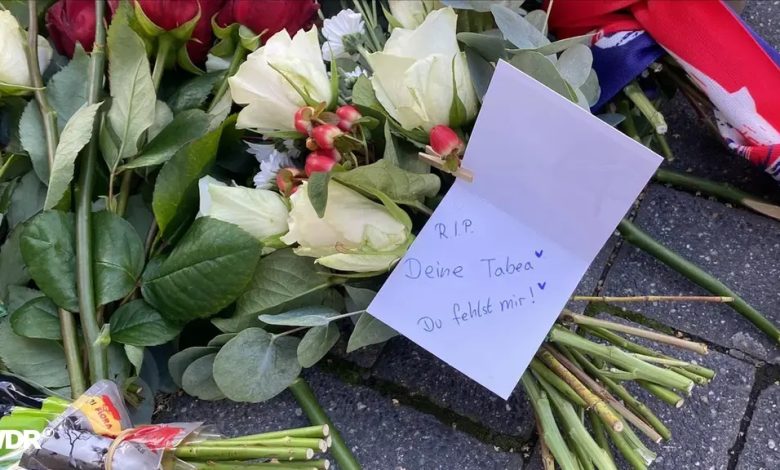 R.I.P.
Deine Tabea
Du fehlst mir!
WDR